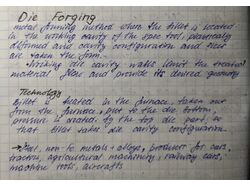 Die Forging
metal forming method where the billet is located
in the working cavity of the spec tool, plastically
deformed and cavity configuration and need
are taken the form.
Working die cavity walls limit the treated
material flow and provide its desired geometry
Technology
Billet is heated in the furnace, taken out
from the furnace, put to the die bottom,
pressed in loaded by the top die part, so
that billet takes die cavity configuration.
non-fe metals + alloys, product for cars,
tractors, agricultural machinery, railway cars,
machine tools, aircrafts